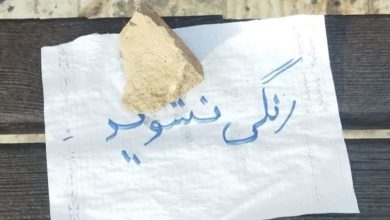 رنگی نشوید